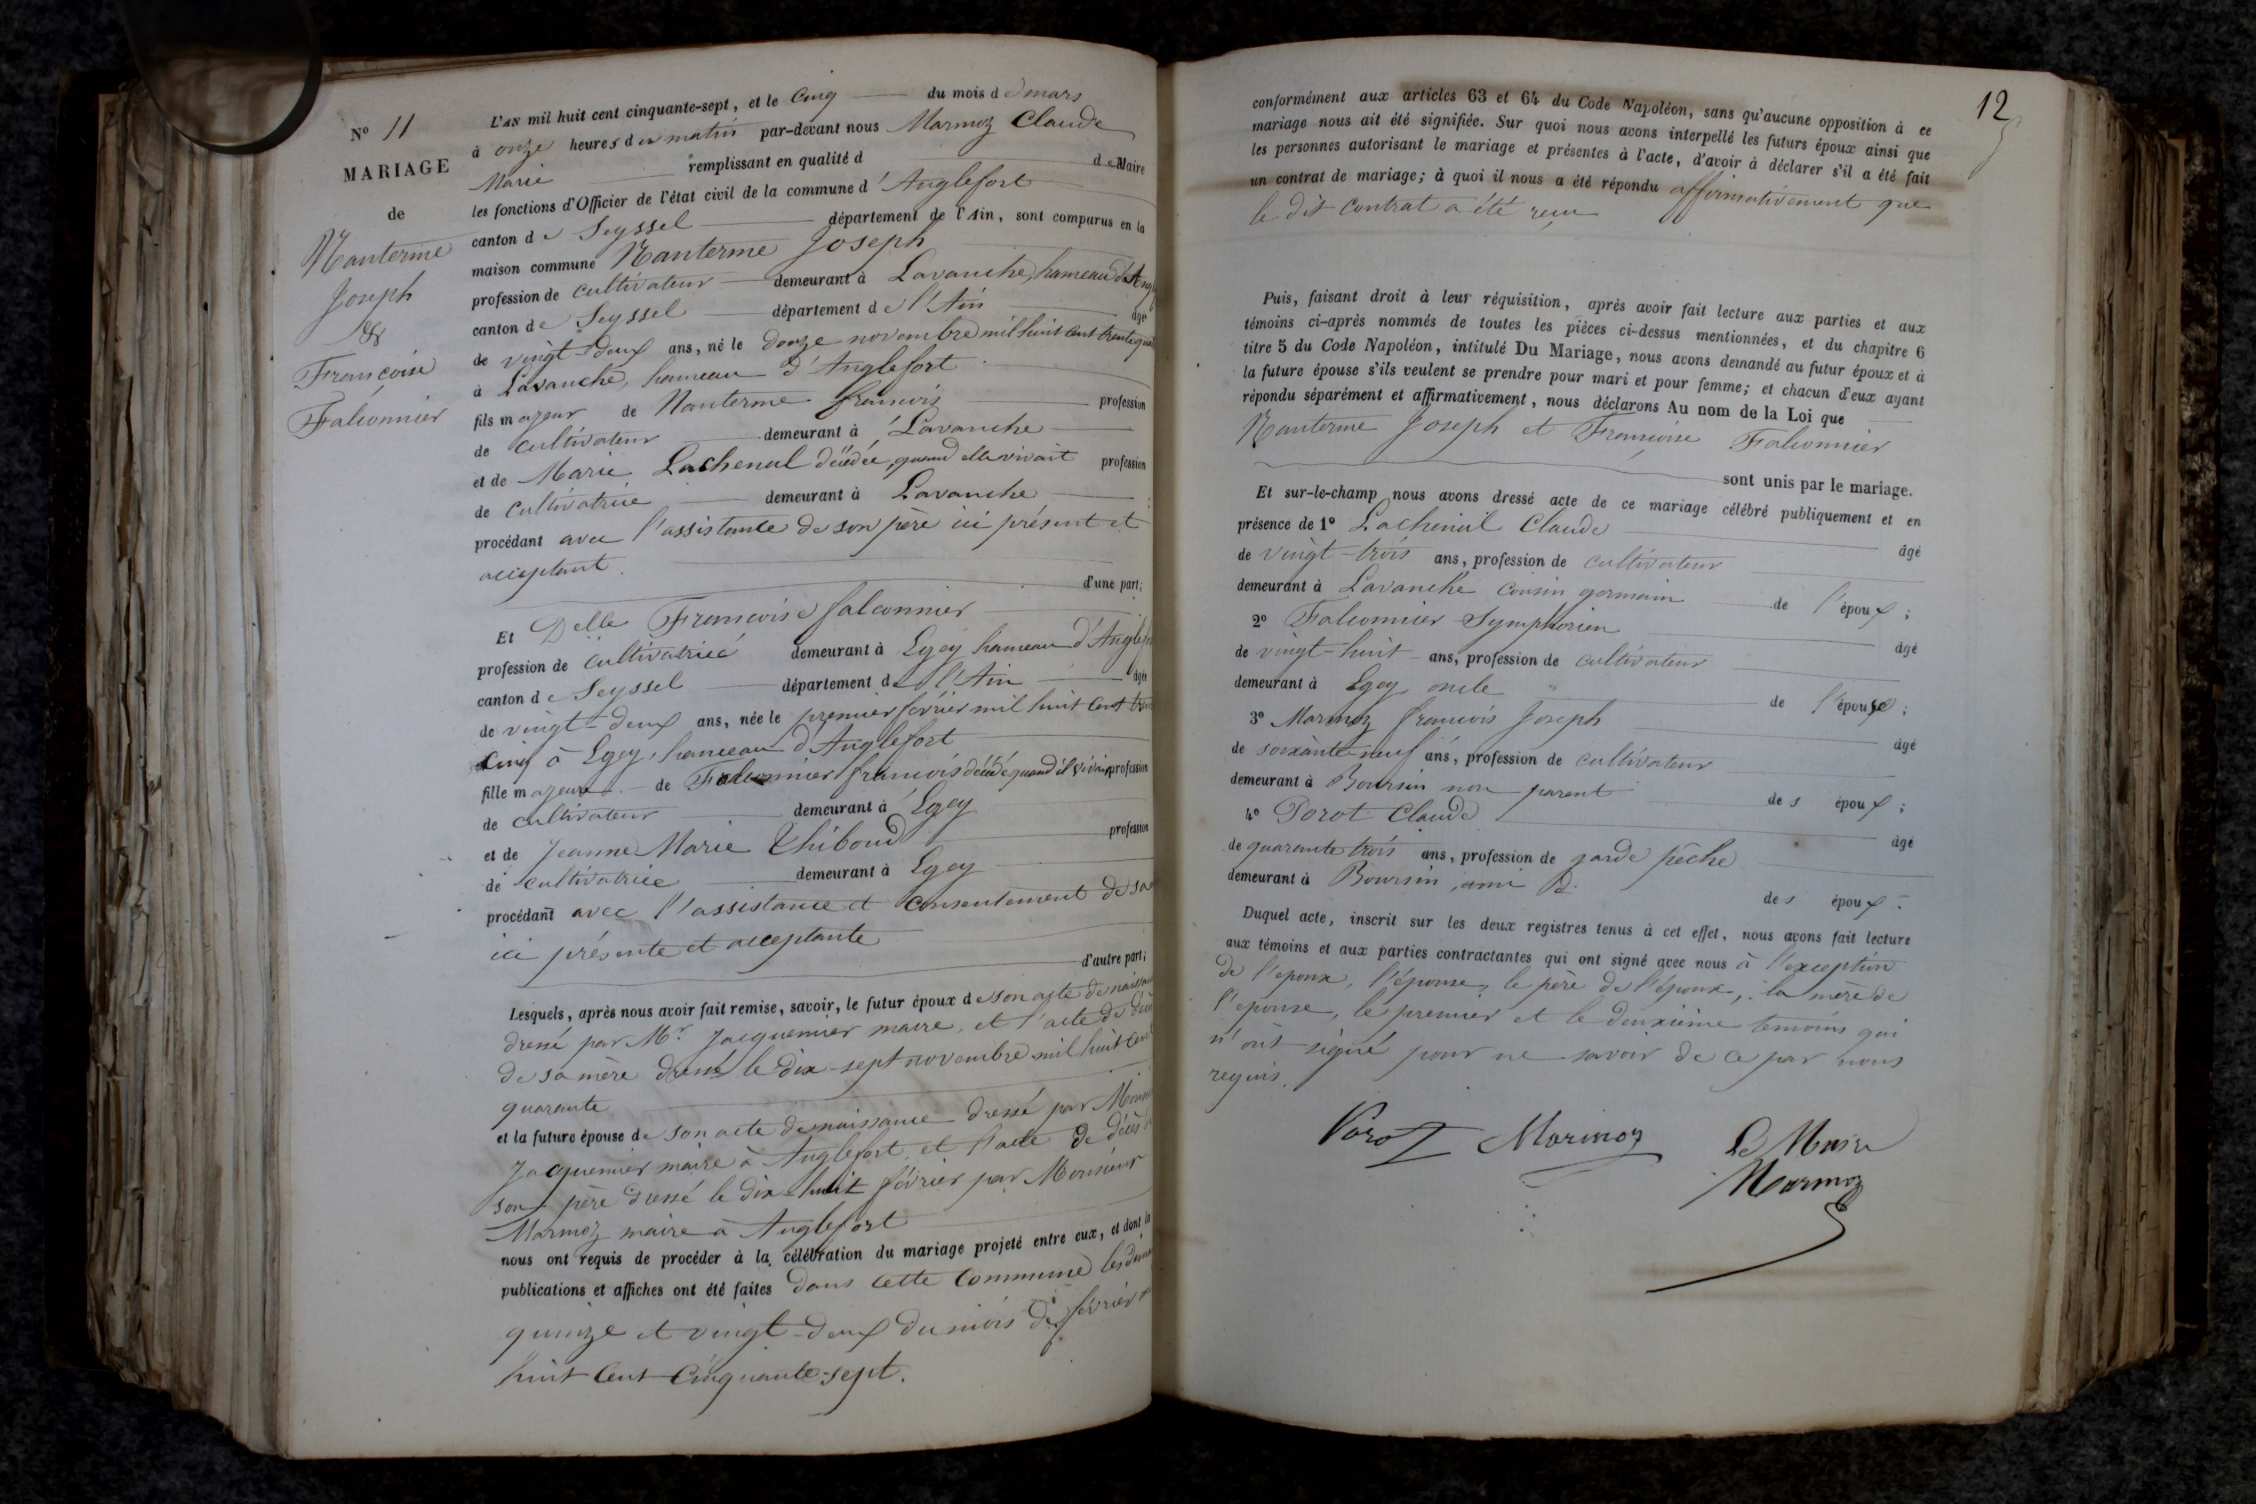 N° 11
MARIAGE
de
Nanterme
Joseph
&
Françoise
Falconnier
L'AN mil huit cent cinquante-sept, et le Cinq du mois d e mars
à onze heures d u matin par-devant nous Marmoz Claude
Marie remplissant en qualité d e Maire
les fonctions d'Officier de l'état civil de la commune d' Anglefort
canton d e Seyssel département de l'Ain, sont comparus en la
maison commune Nanterme Joseph
profession de cultivateur demeurant à Lavanche, hameau d'Ang
canton de Seyssel département d e l'Ain âgé
de vingt-deux ans, né le douze novembre mil huit cent trente qua
à Lavanche, hameau d'Anglefort
fils majeur de Nanterme françois profession
de cultivateur demeurant à Lavanche
et de Marie Lachenal décédée, quand elle vivait profession
de cultivatrice demeurant à Lavanche
procédant avec l'assistance de son père ici présent et
acceptant. d'une part;
Et Delle Françoise falconnier
profession de cultivatrice demeurant à Egey hameau d'Anglef
canton d e Seyssel département d e l'Ain âgée
de vingt-deux ans, née le premier février mil huit cent tren
cinq à Egey, hameau d'Anglefort
fille majeure de Falconnier françois décédé quand il vivait profession
de cultivateur demeurant à Egey
et de Jeanne Marie Thiboud profession
de cultivatrice demeurant à Egey
procédant avec l'assistance et consentement de sa
ici présente et acceptante
d'autre part;
Lesquels, après nous avoir fait remise, savoir, le futur époux d e son acte de naissan
dressé par Mr Jacquemier maire, et l'acte de décè
de sa mère dressé le dix-sept novembre mil huit cent
quarante
et la future épouse de son acte de naissance dressé par Mons
Jacquemier maire à Anglefort et l'acte de décès
son père dressé le dix-huit février par Monsieur
Marmoz maire à Anglefort
nous ont requis de procéder à la célébration du mariage projeté entre eux, et dont la
publications et affiches ont été faites dans cette Commune les dim
quinze et vingt-deux du mois de février
huit Cent Cinquante-sept.
12
conformément aux articles 63 et 64 du Code Napoléon, sans qu'aucune opposition à ce
mariage nous ait été signifiée. Sur quoi nous avons interpellé les futurs époux ainsi que
les personnes autorisant le mariage et présentes à l'acte, d'avoir à déclarer s'il a été fait
un contrat de mariage; à quoi il nous a été répondu affirmativement que
le dit contrat a été reçu
Puis, faisant droit à leur réquisition, après avoir fait lecture aux parties et aux
témoins ci-après nommés de toutes les pièces ci-dessus mentionnées, et du chapitre 6
titre 5 du Code Napoléon, intitulé Du Mariage, nous avons demandé au futur époux et à
la future épouse s'ils veulent se prendre pour mari et pour femme; et chacun d'eux ayant
répondu séparément et affirmativement, nous déclarons Au nom de la Loi que
Nanterme Joseph et Françoise Falconnier
sont unis par le mariage.
Et sur-le-champ nous avons dressé acte de ce mariage célébré publiquement et en
présence de 1° Lachenal Claude âgé
de vingt-trois ans, profession de cultivateur
demeurant à Lavanche cousin germain de l'époux;
2° Falconnier Symphorien âgé
de vingt-huit ans, profession de cultivateur
demeurant à Egey oncle de l'épouse;
3° Marmoz françois Joseph âgé
de soixante neuf ans, profession de cultivateur
demeurant à Boursin non parent des époux;
4° Porot Claude âgé
de quarante trois ans, profession de garde pêche
demeurant à Boursin, ami des époux.
Duquel acte, inscrit sur les deux registres tenus à cet effet, nous avons fait lecture
aux témoins et aux parties contractantes qui ont signé avec nous à l'exception
de l'époux, l'épouse, le père de l'époux, la mère de
l'épouse, le premier et le deuxième témoins qui
n'ont signé pour ne savoir de ce par nous
requis.
Porot Marmoz Le Maire
Marmoz